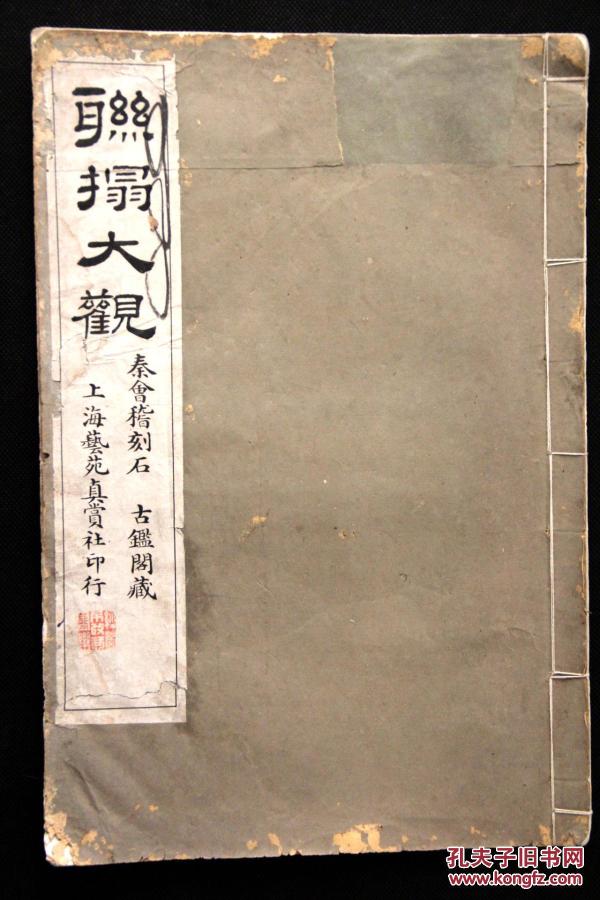 聯搨大觀
秦會稽刻石 古鑑閣藏
上海藝苑真賞社印行
孔夫子旧书网
www.kongfz.com